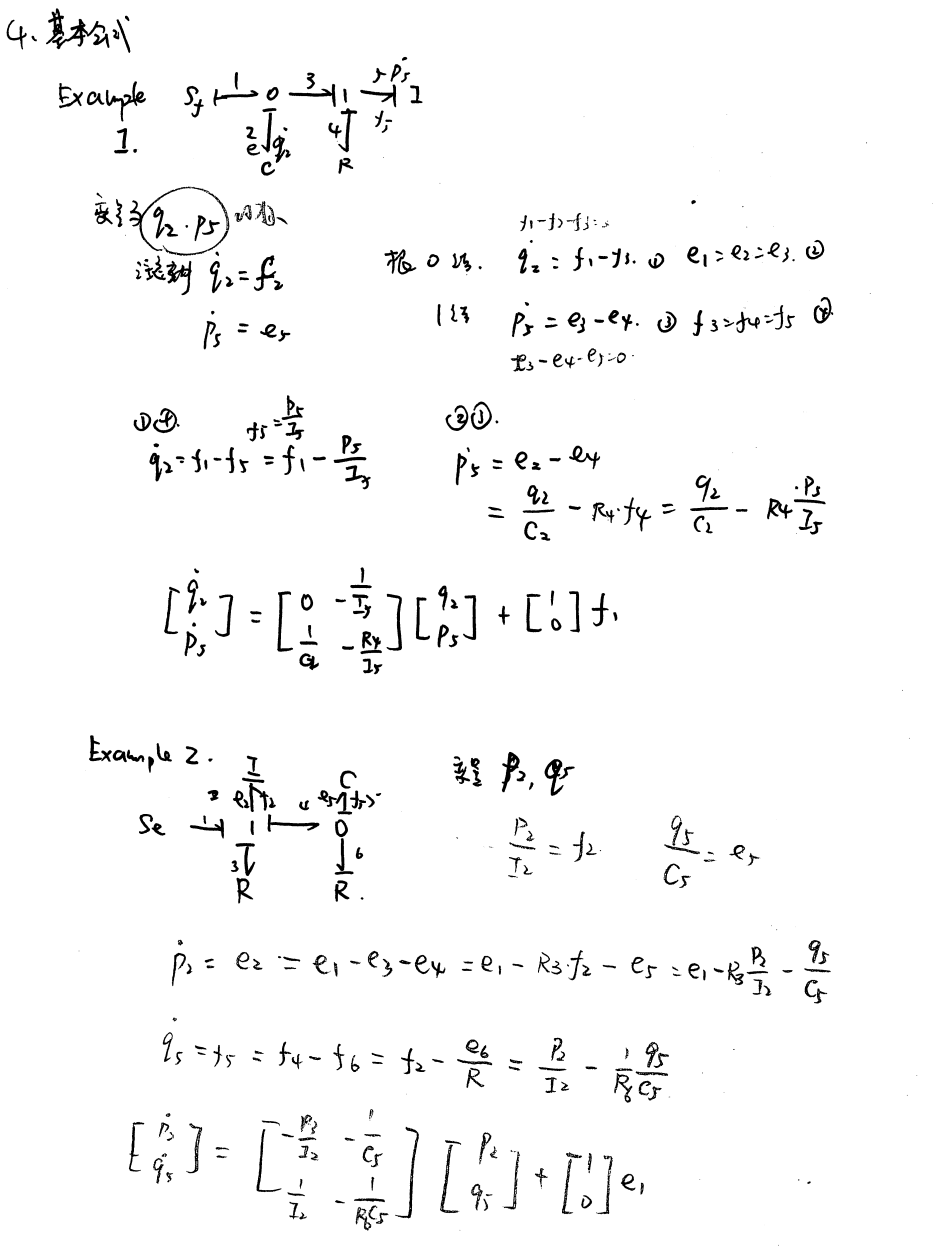 4、基本公式
Example 1. Sf 1 0 3 1 5 ṗ5 I
2 e2 q̇2 4 f5
C R
变量为 q2 · p5
f1-f2-f3=0
注意到 q̇2 = f2 根 0 结. q̇2 = f1-f3. ① e1=e2=e3. ②
ṗ5 = e5 1结 ṗ5 = e3-e4. ③ f3=f4=f5 ④.
e3-e4-e5=0.
①④. f5 = P5/I5 ②①.
q̇2 = f1-f5 = f1 - P5/I5 ṗ5 = e2-e4
= q2/C2 - R4·f4 = q2/C2 - R4·P5/I5
[q̇2; ṗ5] = [0 -1/I5; 1/C2 -R4/I5] [q2; P5] + [1; 0] f1
Example 2. I C 变量 P2, q5
e2 f2 4 e5 f5
Se 1 1 0 P2/I2 = f2. q5/C5 = e5
3 6
R R.
ṗ2 = e2 = e1-e3-e4 = e1-R3·f2-e5 = e1-R3 P2/I2 - q5/C5
q̇5 = f5 = f4-f6 = f2 - e6/R = P2/I2 - 1/R6 q5/C5
[ṗ3; q̇5] = [-R3/I2 -1/C5; 1/I2 -1/R6C5] [P2; q5] + [1; 0] e1